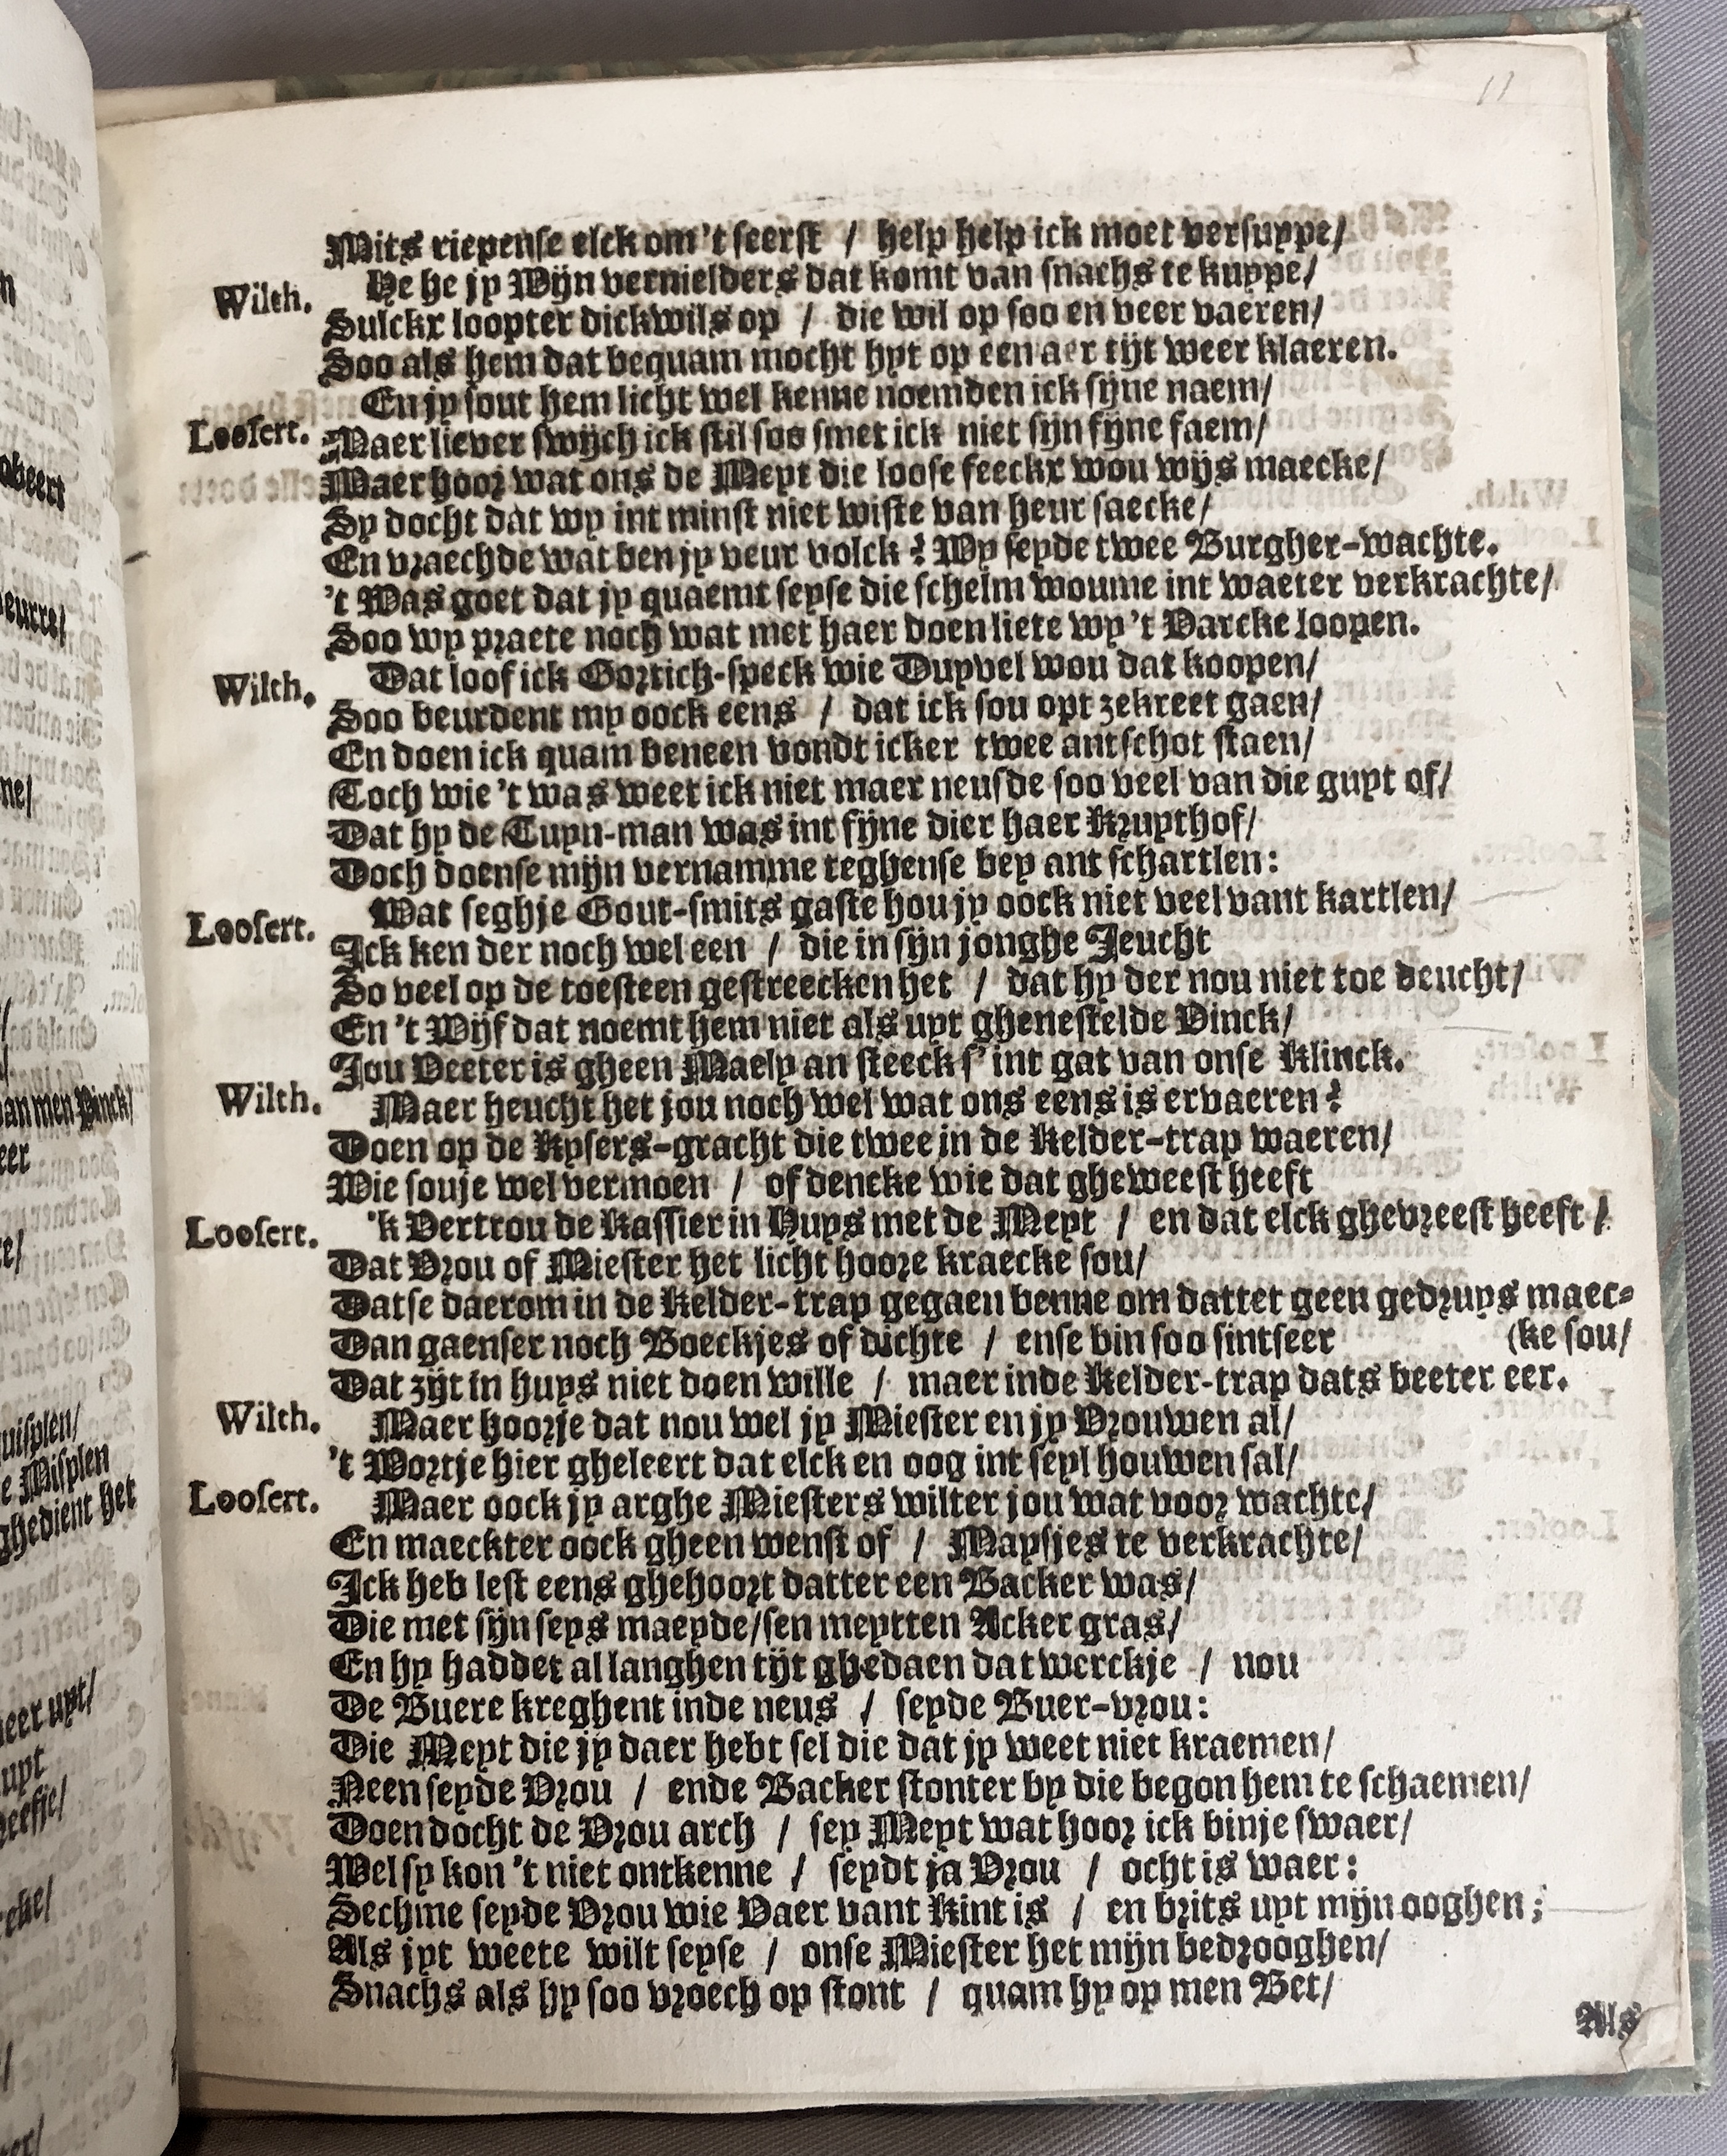 11
Mits riepense elck om 't seerst / help help ick moet versuype/
Wilth. He he jy Wijn vernielders dat komt van snachs te kuype/
Sulckx loopter dickwils op / die wil op soo en veer vaeren/
Soo als hem dat bequam mocht hyt op een aer tijt weer klaeren.
En jy sout hem licht wel kenne noemden ick sijne naem/
Loosert. Maer liever swijch ick stil soo smet ick niet sijn fijne faem/
Maer hoor wat ons de Meyt die loose feeckx wou wijs maecke/
Sy docht dat wy int minst niet wiste van heur saecke/
En vraechde wat ben jy veur volck? Wy seyde twee Burgher-wachte.
't Was goet dat jy quaemt seyse die schelm woume int waeter verkrachte/
Soo wy praete noch wat met haer doen liete wy 't Varcke loopen.
Wilth. Dat loof ick Gortich-speck wie Duyvel wou dat koopen/
Soo beurdent my oock eens / dat ick sou opt zekreet gaen/
En doen ick quam beneen vondt icker twee ant schot staen/
Toch wie 't was weet ick niet maer neusde soo veel van die guyt of/
Dat hy de Tuyn-man was int fijne dier haer Kruythof/
Doch doense mijn vernamme teghense bey ant schartlen:
Loosert. Wat seghje Gout-smits gaste hou jy oock niet veel vant kartlen/
Ick ken der noch wel een / die in sijn jonghe Jeucht
So veel op de toesteen gestreecken het / dat hy der nou niet toe deucht/
En 't Wijf dat noemt hem niet als uyt ghenestelde Dinck/
Jou Veeter is gheen Maely an steeck s' int gat van onse Klinck.
Wilth. Maer heucht het jou noch wel wat ons eens is ervaeren?
Doen op de Kysers-gracht die twee in de Kelder-trap waeren/
Wie souje wel vermoen / of dencke wie dat gheweest heeft
Loosert. 'k Vertrou de Kassier in Huys met de Meyt / en dat elck ghevreest heeft /
Dat Vrou of Miester het licht hoore kraecke sou/
Datse daerom in de Kelder-trap gegaen benne om dattet geen gedruys maec-
Dan gaenser noch Boeckjes of dichte / ense bin soo sintseer (ke sou/
Dat zijt in huys niet doen wille / maer inde Kelder-trap dats beeter eer.
Wilth. Maer hoorje dat nou wel jy Miester en jy Vrouwen al/
't Wortje hier gheleert dat elck en oog int seyl houwen sal/
Loosert. Maer oock jy arghe Miesters wilter jou wat voor wachte/
En maeckter oock gheen wenst of / Maysjes te verkrachte/
Ick heb lest eens ghehoort datter een Backer was/
Die met sijn seys maeyde/sen meytten Acker gras/
En hy haddet al langhen tijt ghedaen dat werckje / nou
De Buere kreghent inde neus / seyde Buer-vrou:
Die Meyt die jy daer hebt sel die dat jy weet niet kraemen/
Neen seyde Vrou / ende Backer stonter by die begon hem te schaemen/
Doen docht de Vrou arch / sey Meyt wat hoor ick binje swaer/
Wel sy kon 't niet ontkenne / seydt ja Vrou / ocht is waer:
Sechme seyde Vrou wie Vaer vant Kint is / en brits uyt mijn ooghen;
Als jyt weete wilt seyse / onse Miester het mijn bedrooghen/
Snachs als hy soo vroech op stont / quam hy op men Bet/
Als